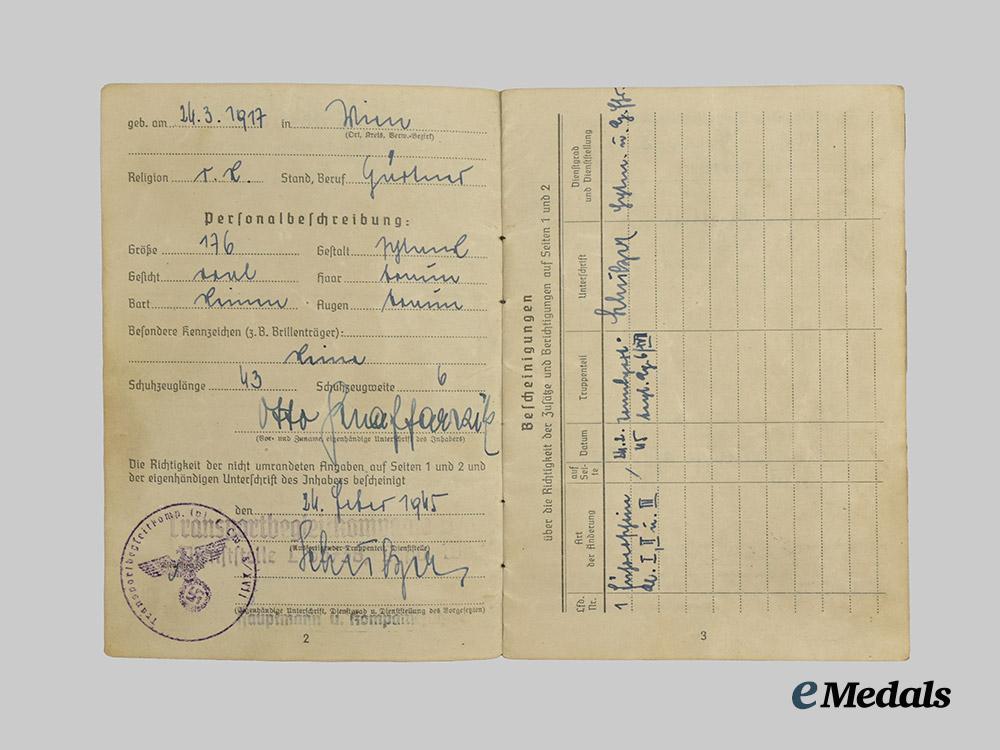 geb. am 24.3.1917 in Wien
(Ort, Kreis, Verw.-Bezirk)
Religion r. k. Stand, Beruf Gärtner
Personalbeschreibung:
Größe 176 Gestalt schlank
Gesicht oval Haar braun
Bart keinen Augen braun
Besondere Kennzeichen (z. B. Brillenträger):
keine
Schuhzeuglänge 43 Schuhzeugweite 6
Otto
(Vor- und Zuname, eigenhändige Unterschrift des Inhabers)
Die Richtigkeit der nicht umrandeten Angaben auf Seiten 1 und 2 und
der eigenhändigen Unterschrift des Inhabers bescheinigt
den 24. Feber 1945
Transportbegleitkomp
(Ausfertigender Truppenteil, Dienststelle)
Dienststelle
(Eigenhändige Unterschrift, Dienstgrad u. Dienststellung des Vorgesetzten)
Hauptmann u. Kompanie
Transportbegleitkomp.
2
Bescheinigungen
über die Richtigkeit der Zusätze und Berichtigungen auf Seiten 1 und 2
Lfd. Nr.
Art der Änderung
auf Seite
Datum
Truppenteil
Unterschrift
Dienstgrad und Dienststellung
1
I, II u. III
24.2.
45
3
eMedals